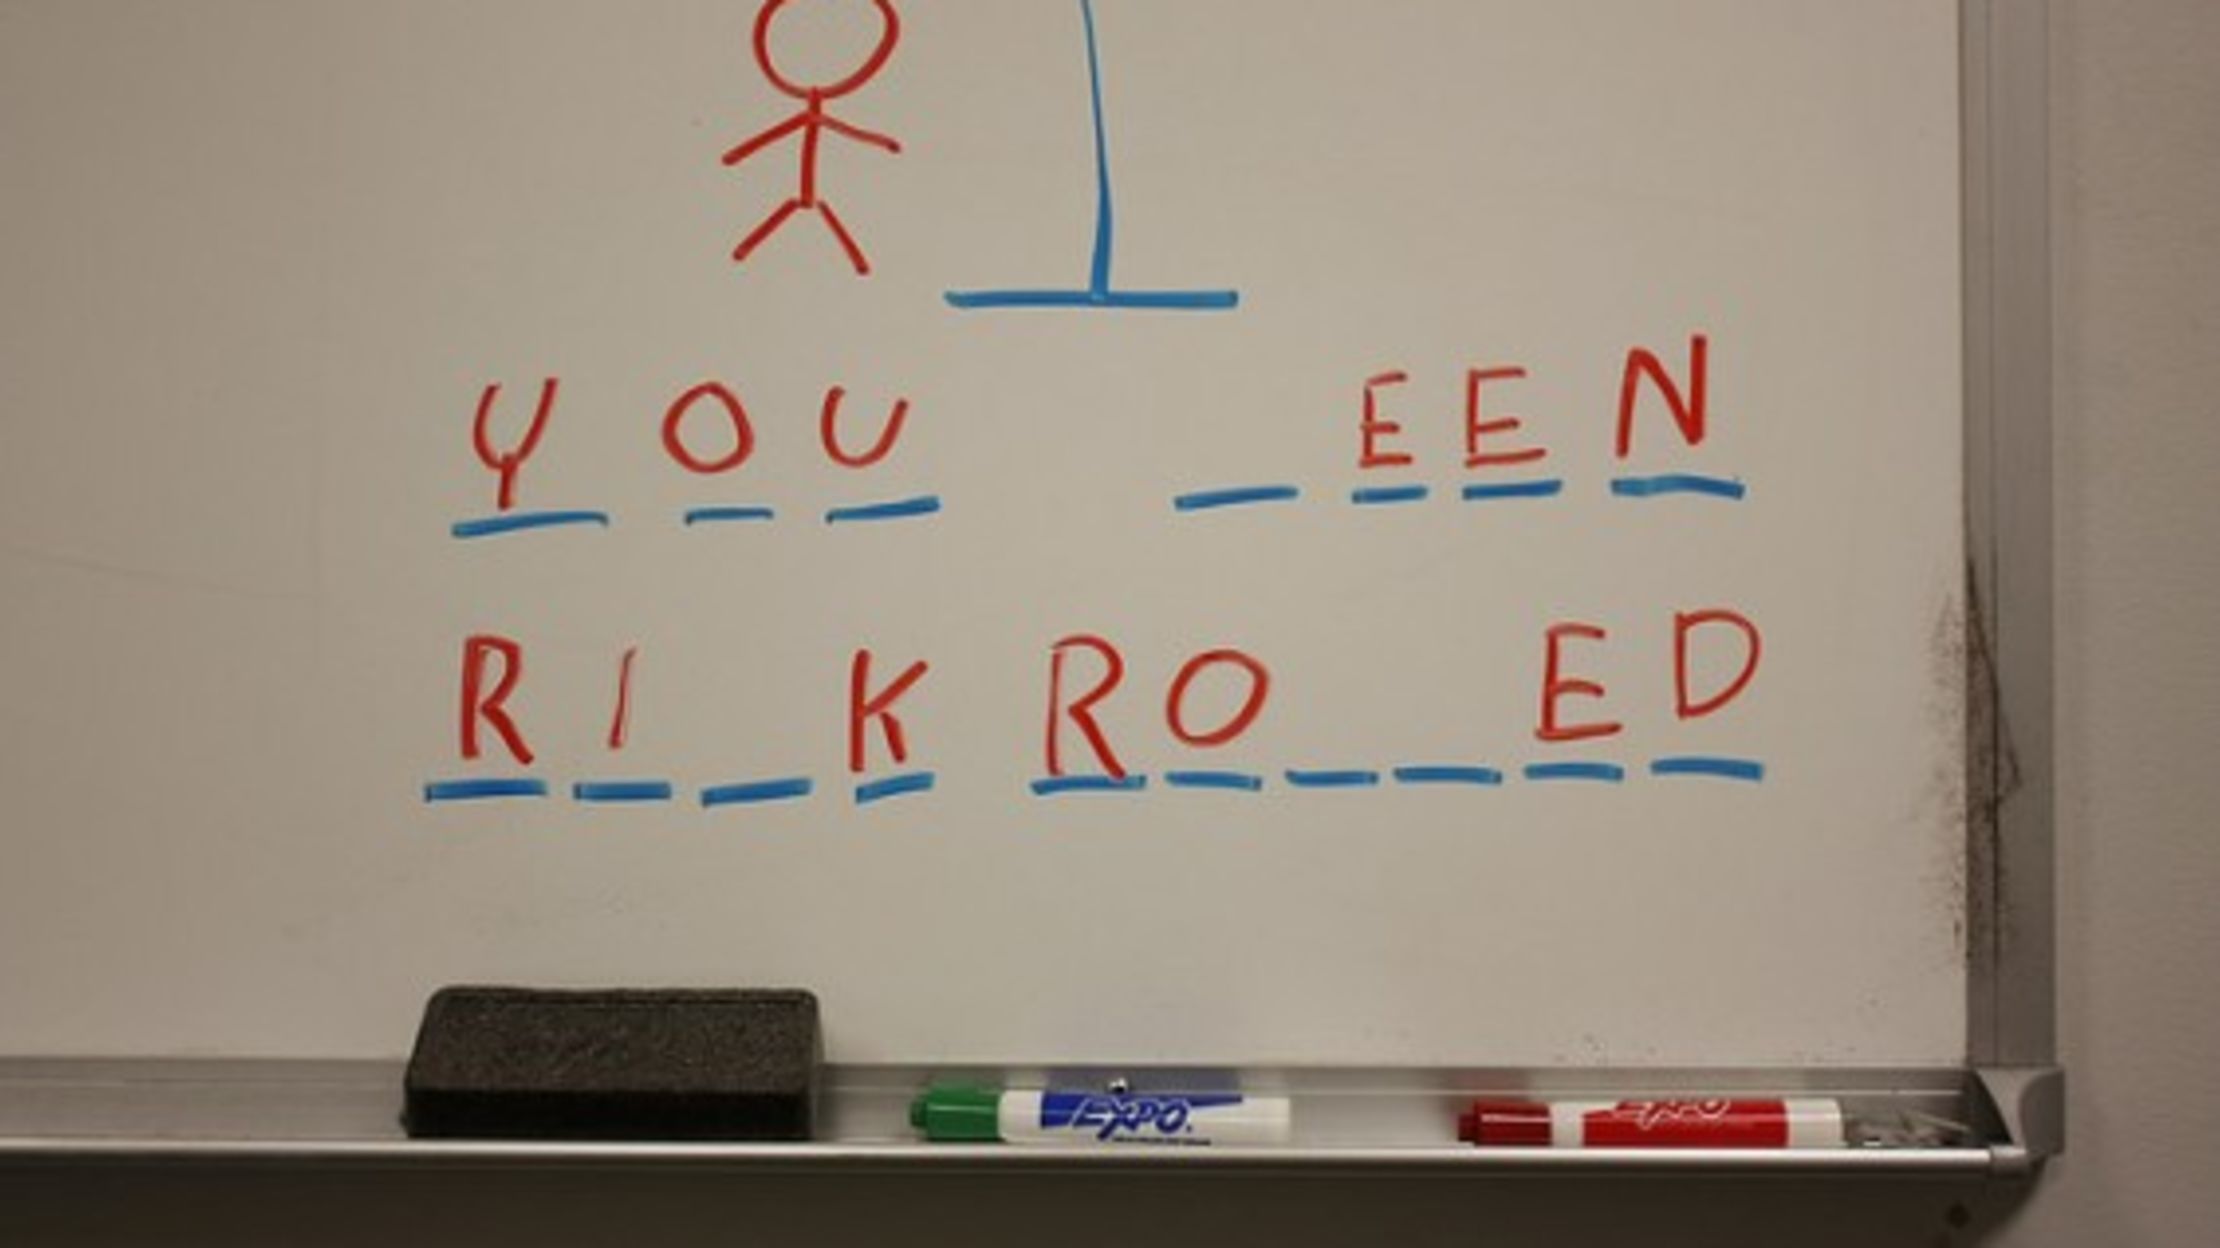 YOU _EEN
RI_K RO__ED
EXPO
EXPO